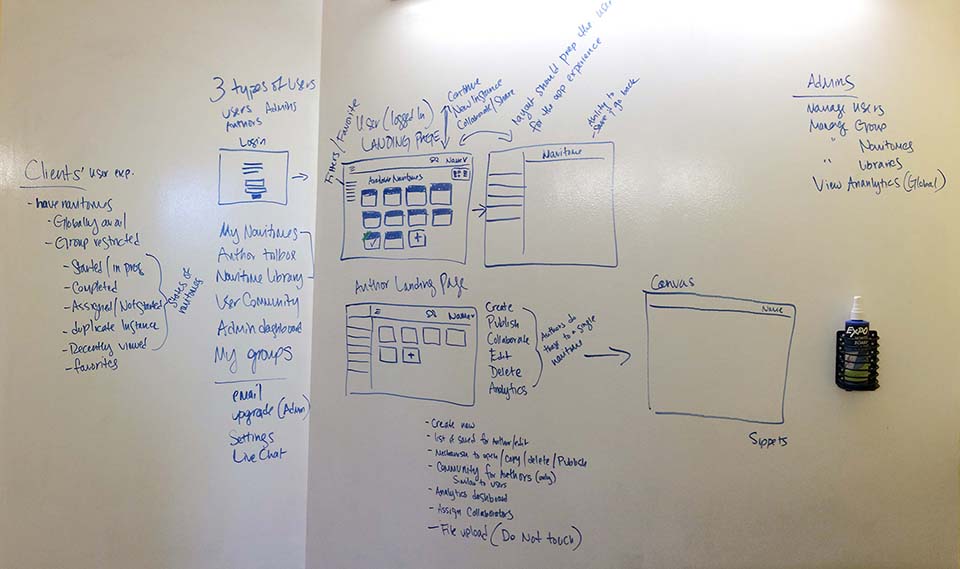 Clients' user exp.
- have navitomes
- Globally avail
- Group restricted
- Started/in prog
- Completed
- Assigned/Not started
- duplicate instance
- Recently viewed
- favorites
states of navitomes
3 types of users
users Admins
Authors
Login
My Navitomes
Author toolbox
Navitome Library
User Community
Admin dashboard
My groups
email
upgrade (Admin)
Settings
Live Chat
Filters/Favorite
User (logged In)
LANDING PAGE
Continue
New Instance
Collaborate/Share
layout should prep the user
for the app experience
Ability to
save / go back
Name
Navitomes
+
Navitome
Author Landing Page
Name
+
Create
Publish
Collaborate
Edit
Delete
Analytics
Authors do
things to a single
navitome
- Create new
- list of saved for Author/edit
- Mechanism to open/copy/delete/Publish
- Community for Authors (only)
Similar to users
- Analytics dashboard
- Assign Collaborators
- File upload (Do Not touch)
Canvas
Name
Sippets
Admins
Manage Users
Manage Group
" Navitomes
" Libraries
View Ananlytics (Global)
EXPO